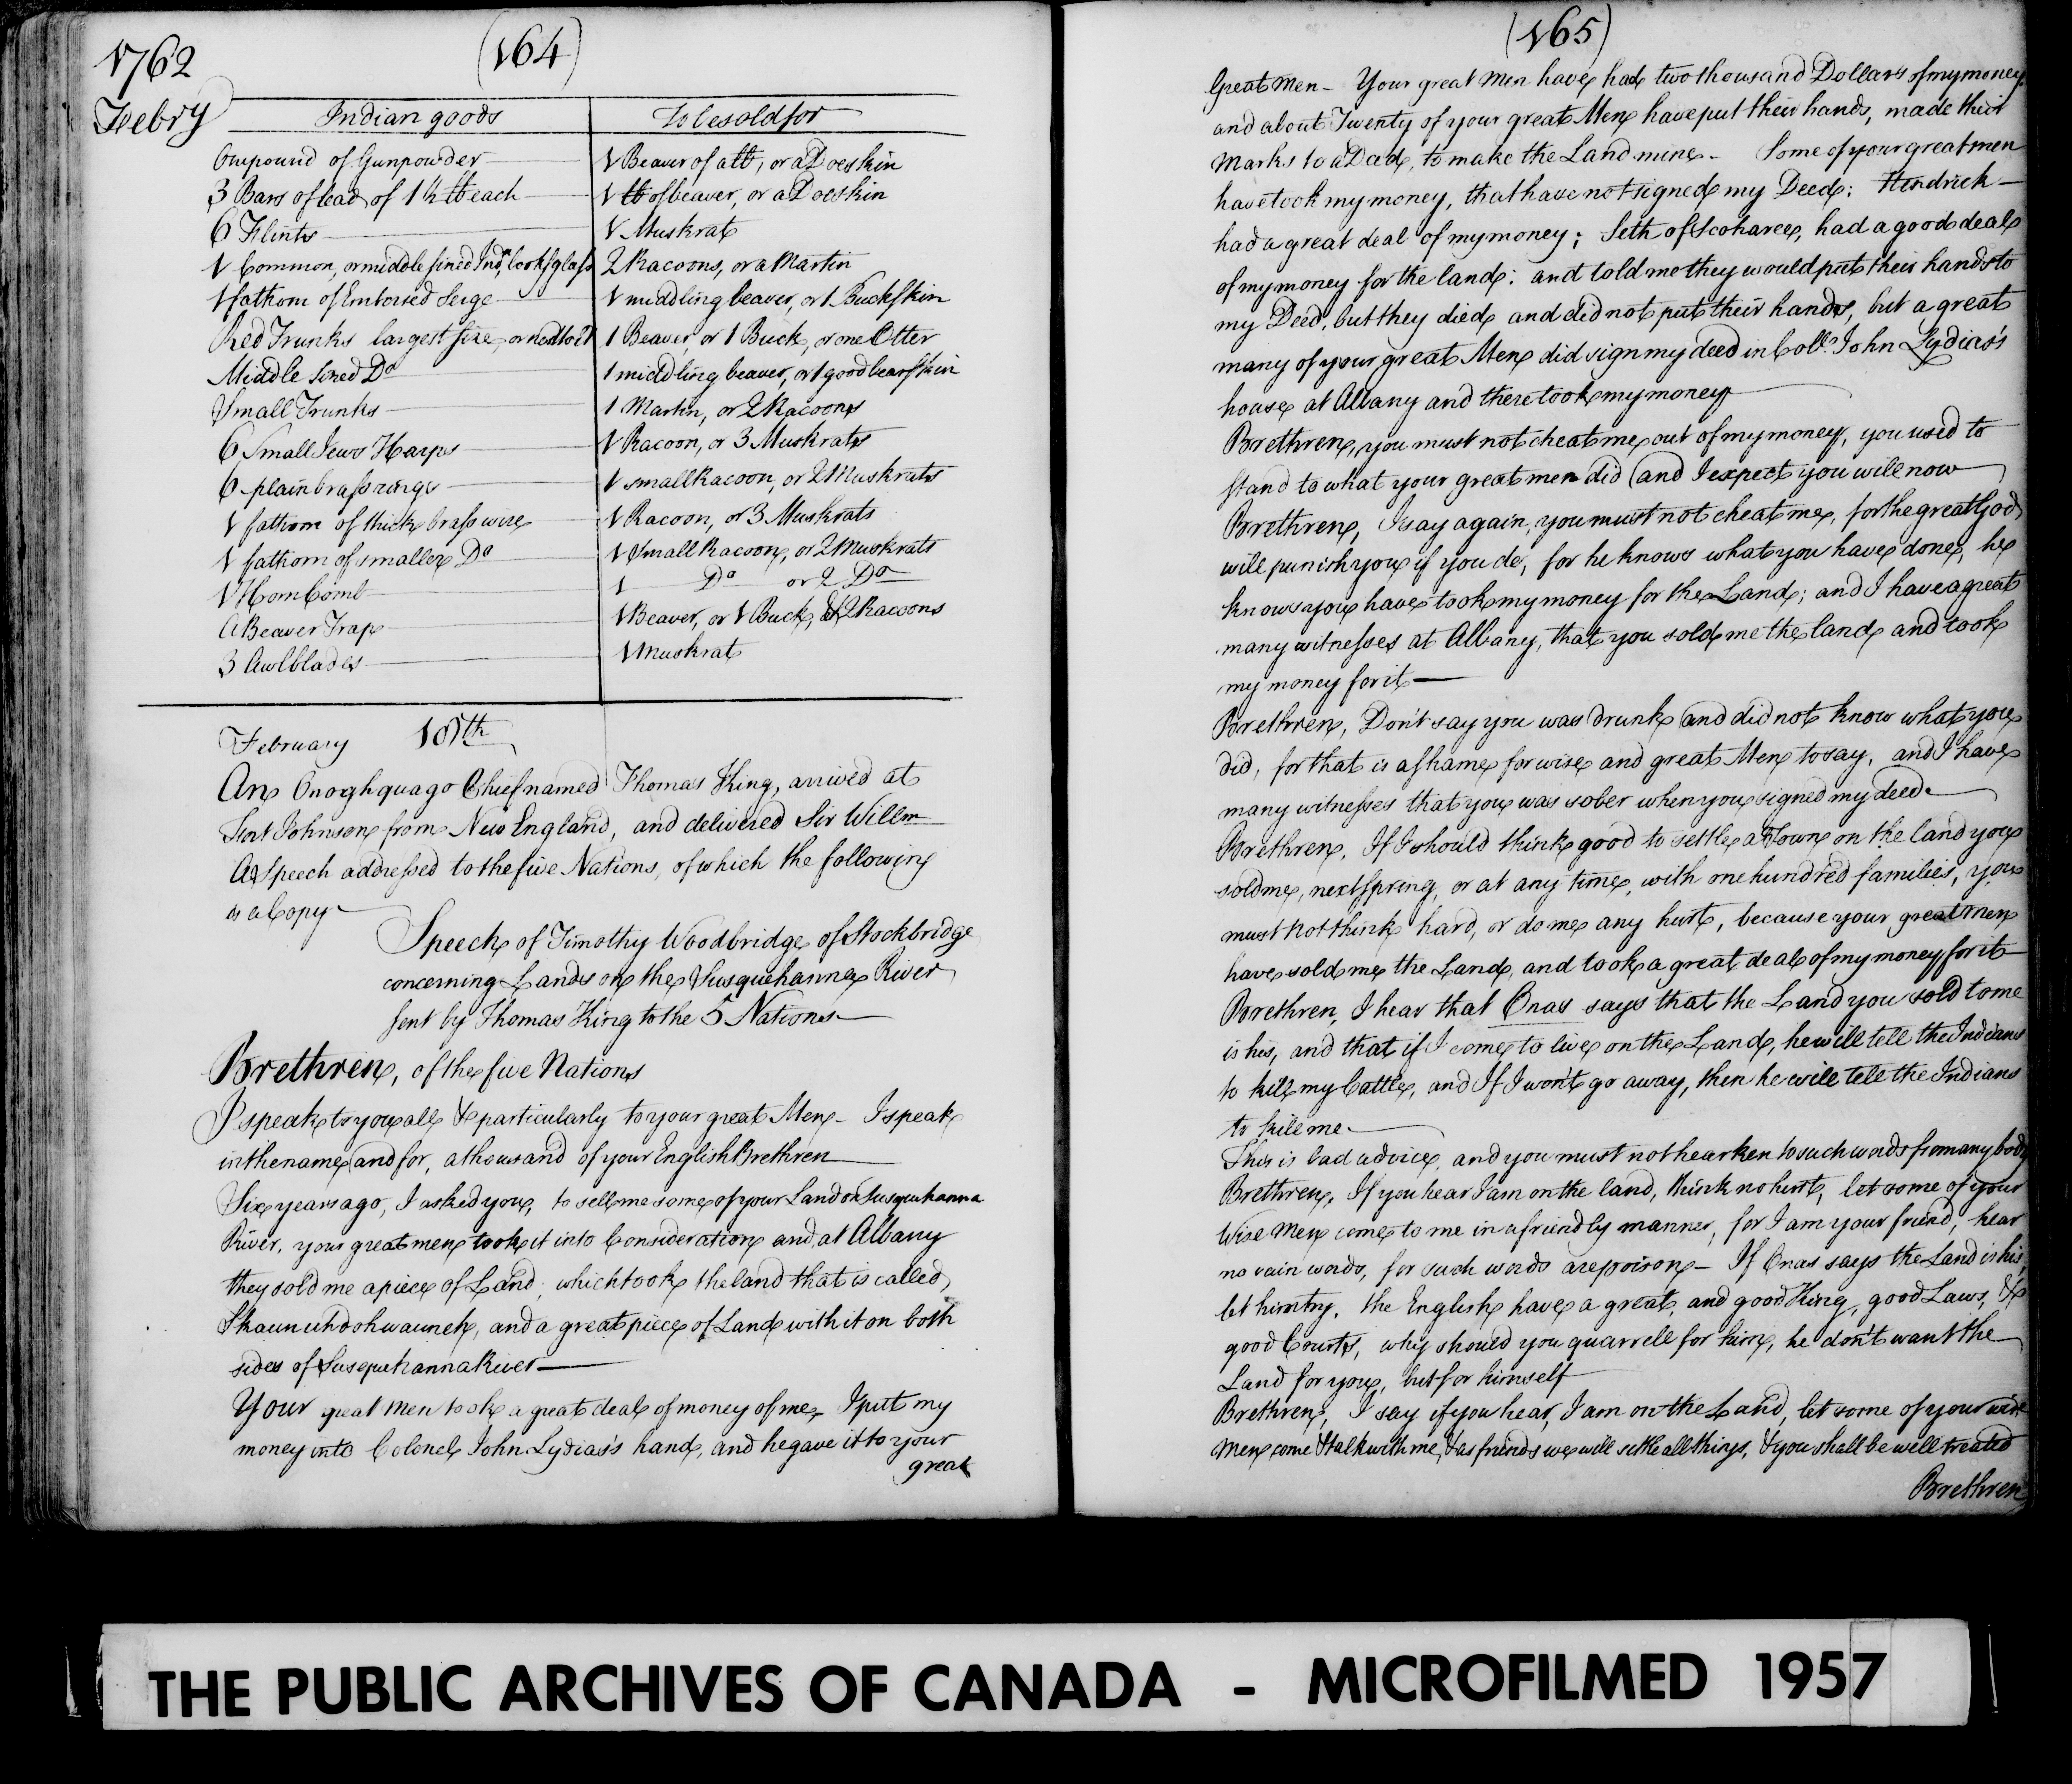 1762
(164)
Febry
Indian goods To be sold for
One pound of Gunpowder 1 Beaver of a lb, or a Doeskin
3 Bars of lead of 1½ lb each 1 lb of beaver, or a Doeskin
6 Flints 1 Muskrat
1 Common, or middle sized Indn. lookg glass 2 Racoons, or a Martin
1 fathom of Embossed Serge 1 middling beaver, or 1 Buckskin
Red Trunks largest size, or next to it 1 Beaver, or 1 Buck, or one Otter
Middle sized Do 1 middling beaver, or 1 good bearskin
Small Trunks 1 Martin, or 2 Racoons
6 Small Jews Harps 1 Racoon, or 3 Muskrats
6 plain brass rings 1 small Racoon, or 2 Muskrats
1 fathom of thick brass wire 1 Racoon, or 3 Muskrats
1 fathom of smaller Do 1 Small Racoon, or 2 Muskrats
1 Horn Comb 1 Do or 2 Do
A Beaver Trap 1 Beaver, or 1 Buck, & 2 Racoons
3 Awlblades 1 Muskrat
February 18th
An Onoghquago Chief named Thomas King, arrived at
Fort Johnson from New England, and delivered Sir Willm
A Speech addressed to the five Nations, of which the following
is a Copy
Speech of Timothy Woodbridge of Stockbridge
concerning Lands on the Susquehanna River
sent by Thomas King to the 5 Nations
Brethren, of the five Nations
I speak to you all & particularly to your great Men - I speak
in the name and for, a thousand of your English Brethren
Six years ago, I asked you, to sell me some of your Land on Susquehanna
River, your great men took it into Consideration and at Albany
they sold me a piece of Land, which took the land that is called,
Skaunuhdohwaunek, and a great piece of Land with it on both
sides of Susquehanna River
Your great men took a great deal of money of me, I put my
money into Colonel John Lydias's hand, and he gave it to your
great
(165)
Great Men - Your great Men have had two thousand Dollars of my money
and about Twenty of your great Men have put their hands, made their
Marks to a Deed, to make the Land mine - Some of your great men
have took my money, that have not signed my Deed; Hendrick
had a great deal of my money; Seth of Scoharee, had a good deal
of my money for the land: and told me they would put their hands to
my Deed, but they died and did not put their hands, but a great
many of your great Men did sign my deed in Coll. John Lydias's
house at Albany and there took my money
Brethren, you must not cheat me out of my money, you used to
stand to what your great men did (and I expect you will now
Brethren, I say again, you must not cheat me, for the great God
will punish you if you do, for he knows what you have done, he
knows you have took my money for the Land; and I have a great
many witnesses at Albany, that you sold me the land and took
my money for it
Brethren, Don't say you was drunk and did not know what you
did, for that is a shame for wise and great Men to say, and I have
many witnesses that you was sober when you signed my deed
Brethren, If I should think good to settle a Town on the land you
sold me, next Spring, or at any time, with one hundred families, you
must not think hard, or do me any hurt, because your great men
have sold me the Land, and took a great deal of my money for it
Brethren, I hear that Onas says that the Land you sold to me
is his, and that if I come to live on the Land, he will tell the Indians
to kill my Cattle, and If I won't go away, then he will tell the Indians
to kill me
This is bad advice, and you must not hearken to such words from any body
Brethren, If you hear I am on the land, think no hurt, let some of your
Wise Men come to me in a friendly manner, for I am your friend, hear
no vain words, for such words are poison - If Onas says the Land is his,
let him try, the English have a great, and good King, good Laws, &
good Courts, why should you quarrell for him, he don't want the
Land for you, but for himself
Brethren, I say if you hear, I am on the Land, let some of your wise
Men come & talk with me, & as friends we will settle all things, & you shall be well treated
Brethren
THE PUBLIC ARCHIVES OF CANADA - MICROFILMED 1957